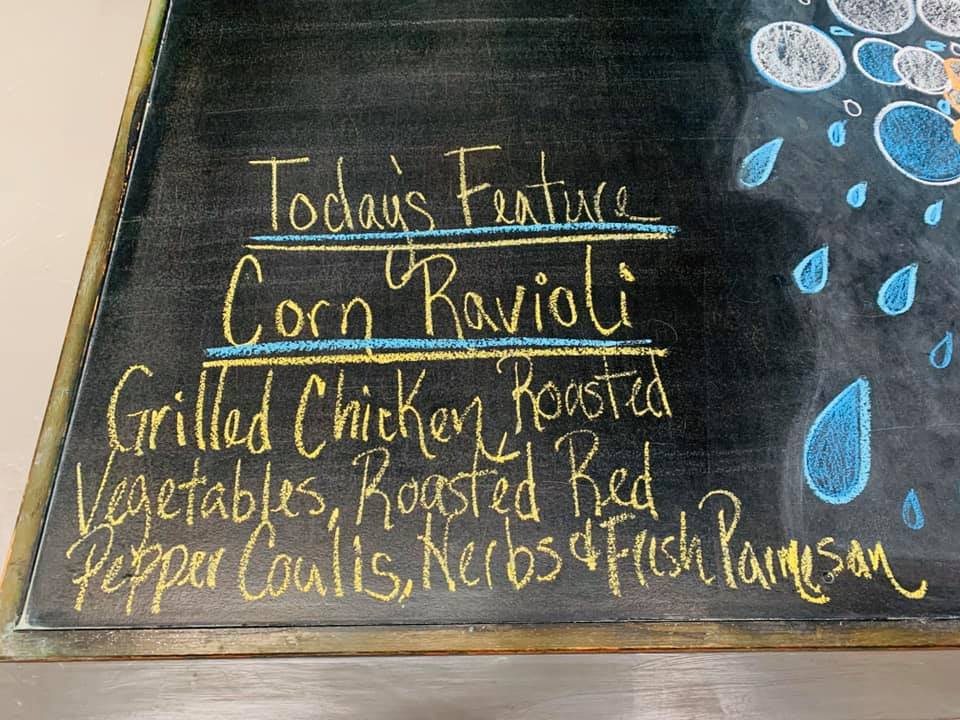 Today's Feature
Corn Ravioli
Grilled Chicken, Roasted
Vegetables, Roasted Red
Pepper Coulis, Herbs & Fresh Parmesan